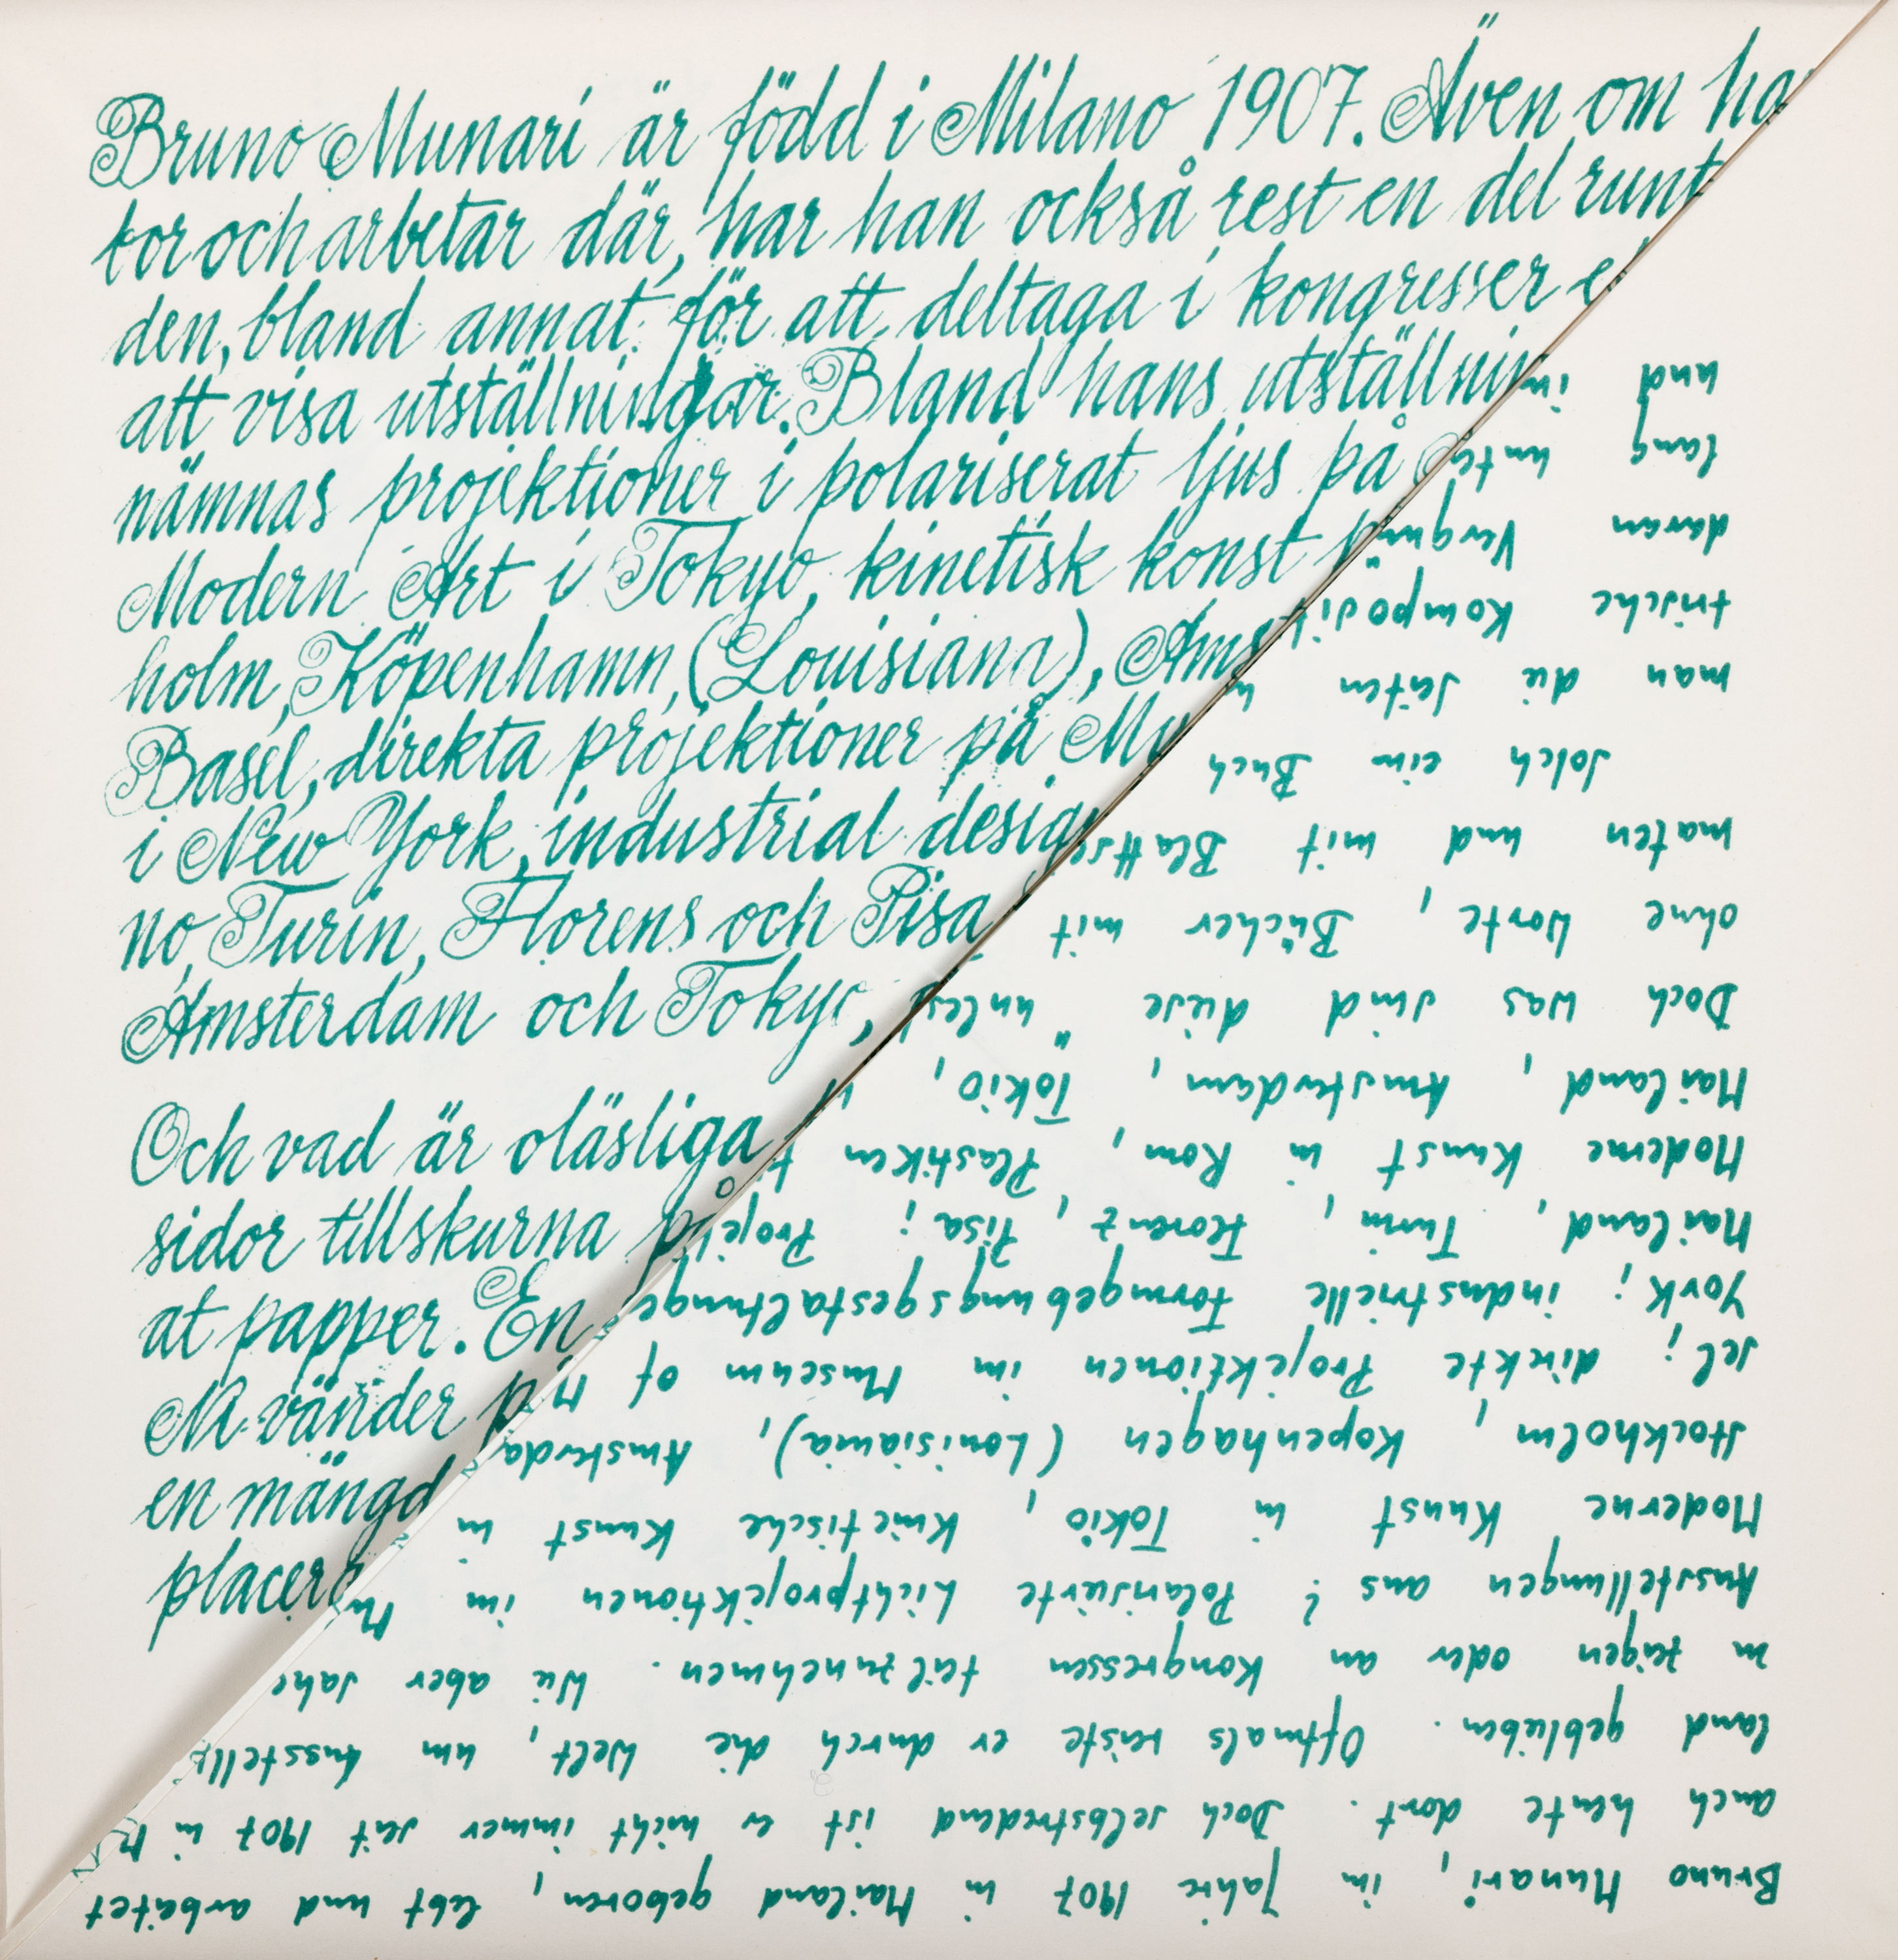 Bruno Munari är född i Milano 1907. Även om ha
tor och arbetar där, har han också rest en del runt
den, bland annat för att deltaga i kongresser e
att visa utställningar. Bland hans utställnin
nämnas projektioner i polariserat ljus på
Modern Art i Tokyo, kinetisk konst
holm, Köpenhamn, (Louisiana), Ams
Basel, direkta projektioner på Mu
i New York, industrial desig
no, Turin, Florens och Pisa
Amsterdam och Tokyo,
Och vad är oläsliga
sidor tillskurna på
at papper. En
Ni vänder p
en mängd
placera
Bruno Munari, im Jahre 1907 in Mailand geboren, lebt und arbeitet
auch heute dort. Doch selbstredend ist er nicht immer seit 1907 in M
land geblieben. Oftmals reiste er durch die Welt, um Ausstell
zu zeigen oder an Kongressen teilzunehmen. Wie aber sahe
Ausstellungen aus? Polarisierte Lichtprojektionen im M
Moderne Kunst in Tokio, Kinetische Kunst in
Stockholm, Kopenhagen (Louisiana), Amsterda
sel; direkte Projektionen im Museum of M
York; industrielle Formgebungsgestaltunge
Mailand, Turin, Florenz, Pisa; Projek
Moderne Kunst in Rom, Plastiken
Mailand, Amsterdam, Tokio,
Doch was sind diese "unles
ohne Worte, Bücher mit
maten und mit Blattse
solch ein Buch
man die Seiten
trische Komposit
daran Vergnü
lang unte
und im